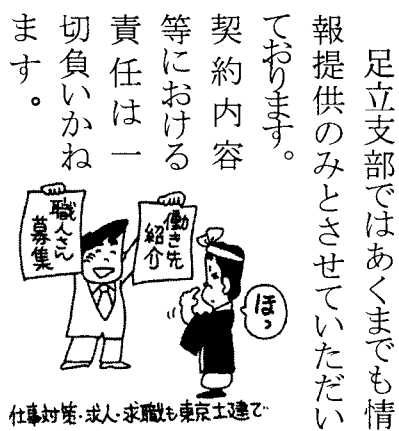 足立支部ではあくまでも情
報提供のみとさせていただい
ております。
契約内容
等における
責任は一
切負いかね
ます。
働き先
紹介
職人さん
募集
ほっ
仕事対策・求人・求職も東京土建で